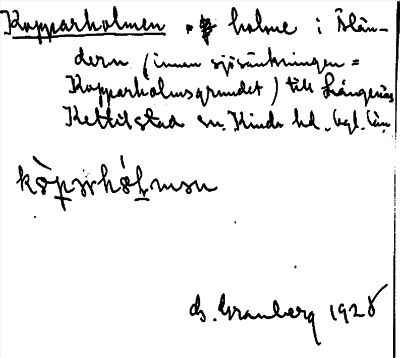 Kopparholmen . holme i Ölån-
dern (innan sjösänkningen =
Kopparholmsgrundet) till Långenäs
Kettilstad sn. Kinda hd. Ögl. län
G. Granberg 1928